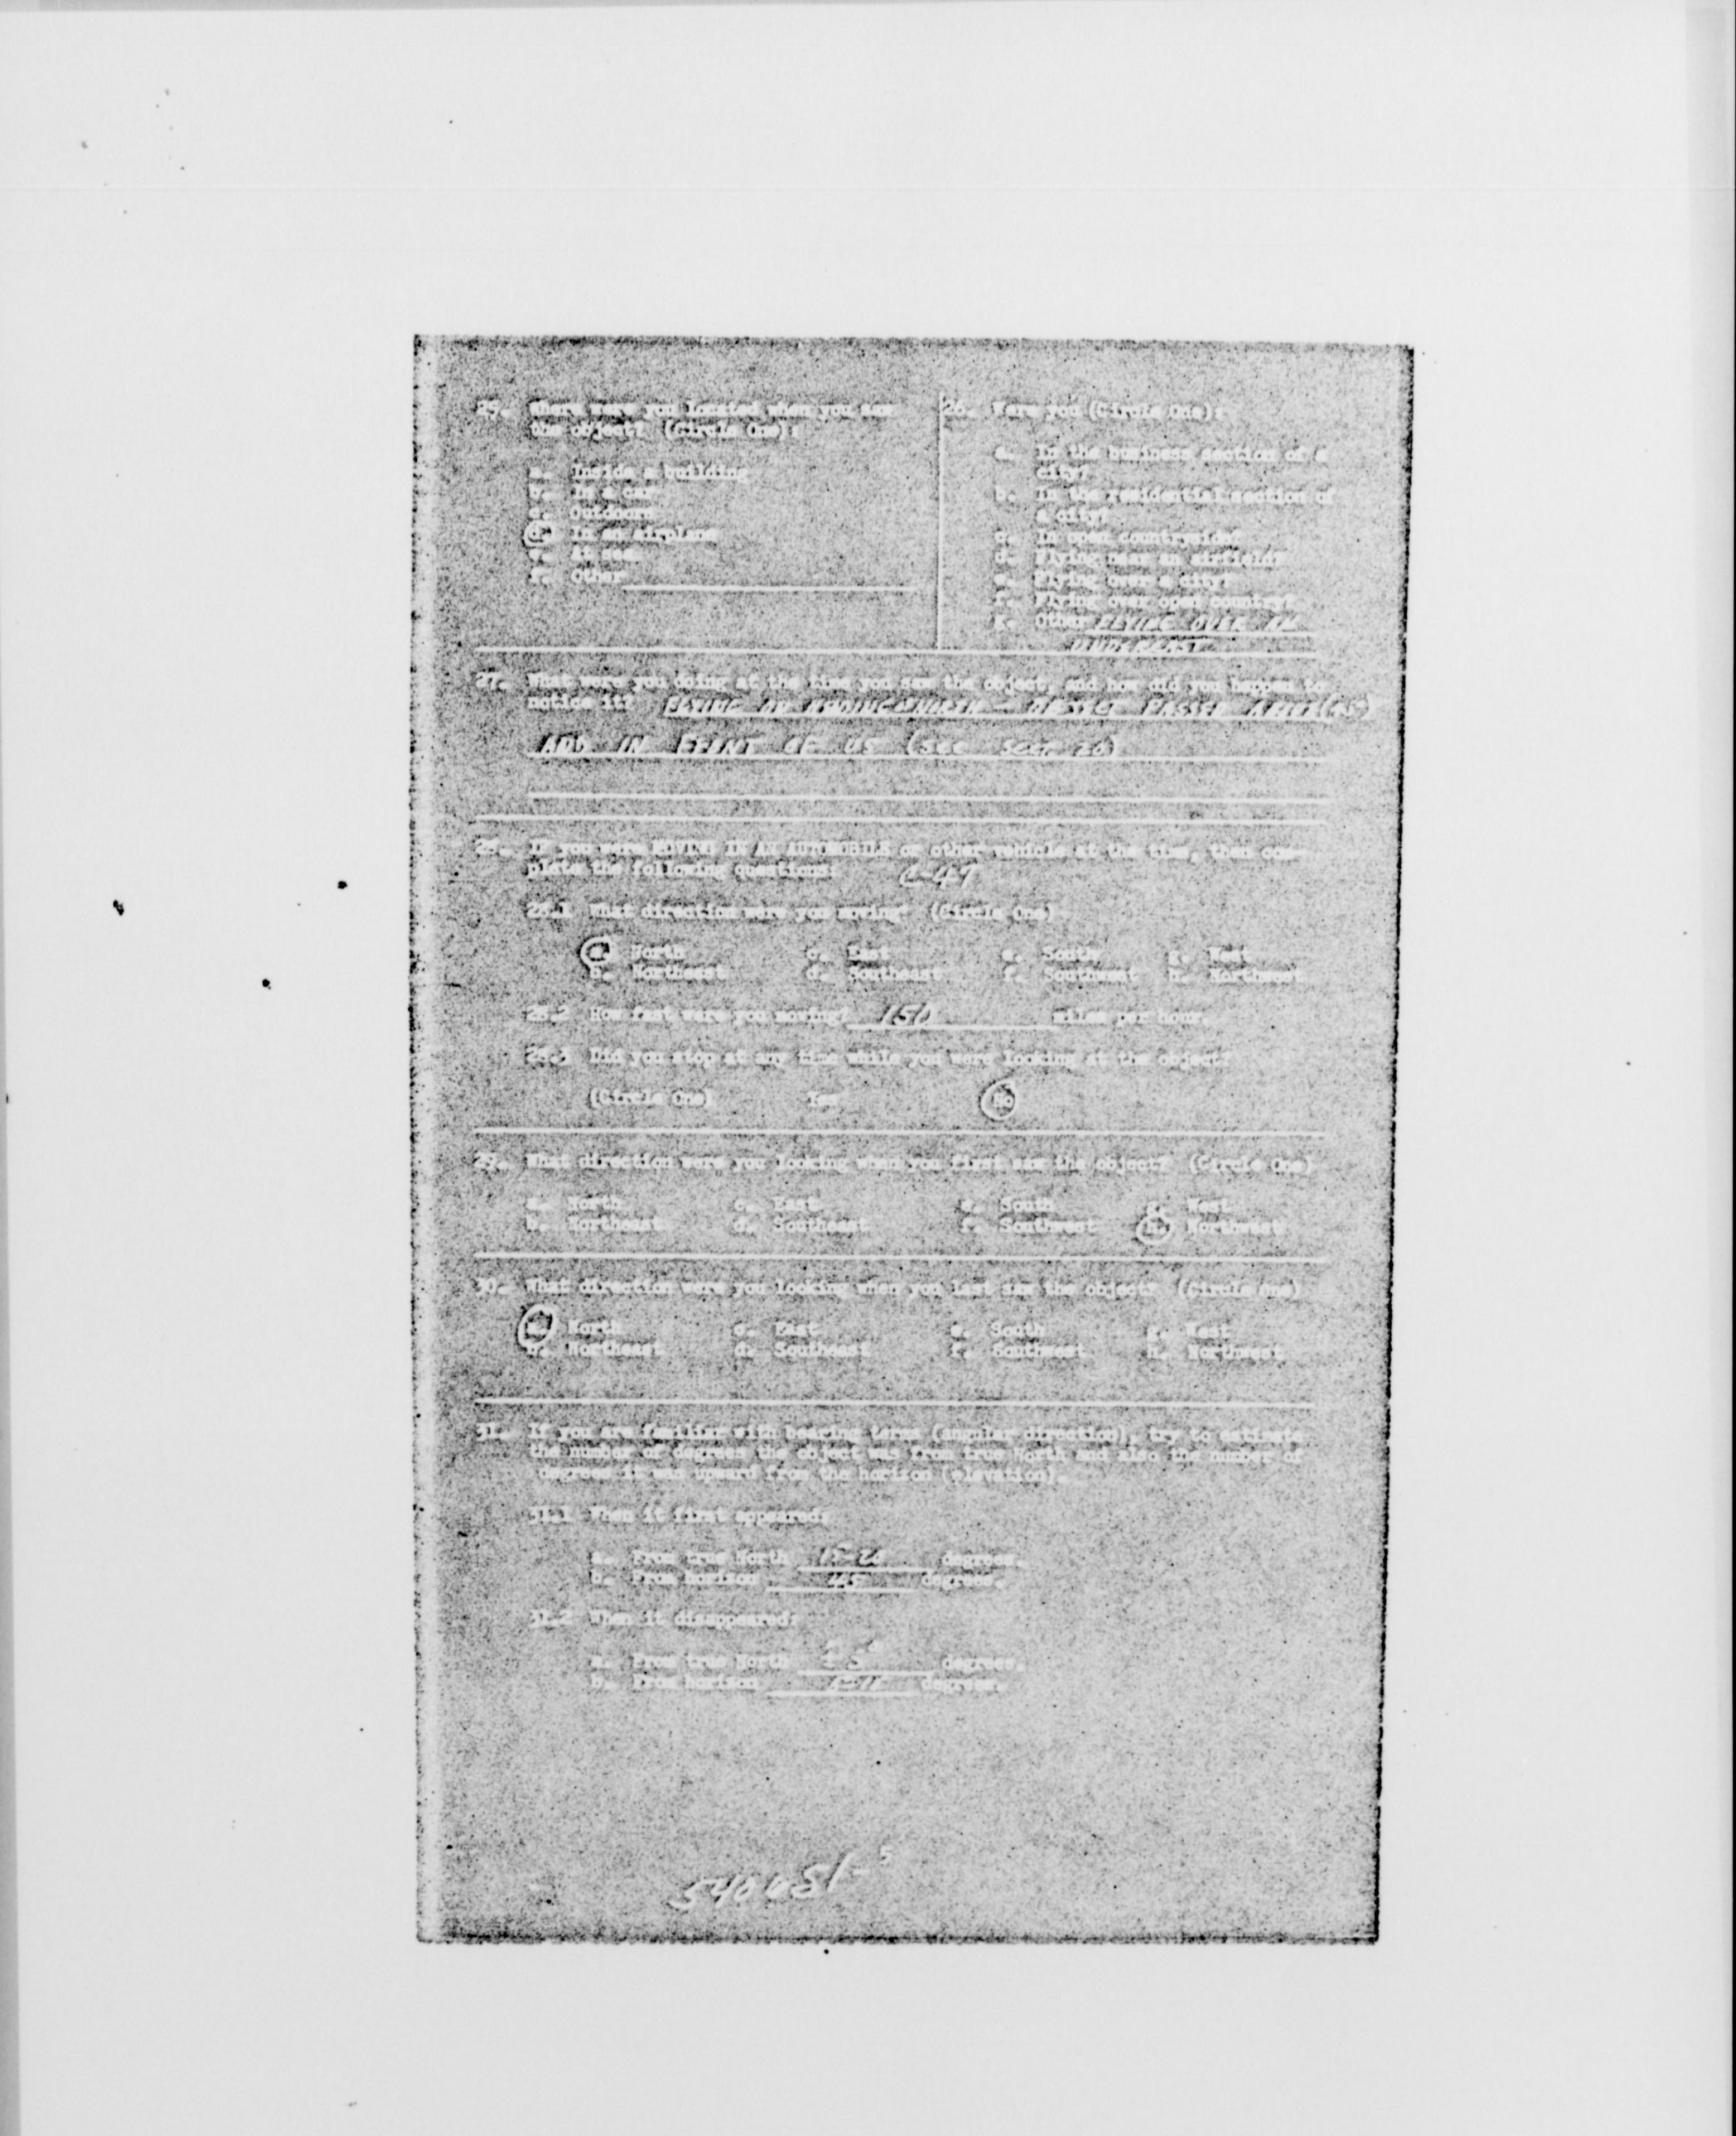 25. Where were you located when you saw
the object? (Circle One):
a. Inside a building
b. In a car
c. Outdoors
d. In an airplane
e. At sea
f. Other
26. Were you (Circle One):
a. In the business section of a
city?
b. In the residential section of
a city?
c. In open countryside?
d. Flying near an airfield?
e. Flying over a city?
f. Flying over open country?
g. Other FLYING OVER AN
UNDERCAST
27. What were you doing at the time you saw the object, and how did you happen to
notice it? FLYING ON HEADING NORTH - OBJECT PASSED
AND IN FRONT OF US (SEE SECT 20)
28. If you were MOVING IN AN AUTOMOBILE or other vehicle at the time, then com-
plete the following questions: C-47
28.1 What direction were you moving? (Circle One)
a. North c. East e. South g. West
b. Northeast d. Southeast f. Southwest h. Northwest
28.2 How fast were you moving? 150 miles per hour.
28.3 Did you stop at any time while you were looking at the object?
(Circle One) Yes No
29. What direction were you looking when you first saw the object? (Circle One)
a. North c. East e. South g. West
b. Northeast d. Southeast f. Southwest h. Northwest
30. What direction were you looking when you last saw the object? (Circle One)
a. North c. East e. South g. West
b. Northeast d. Southeast f. Southwest h. Northwest
31. If you are familiar with bearing terms (angular direction), try to estimate
the number of degrees the object was from true North and also the number of
degrees it was upward from the horizon (elevation).
31.1 When it first appeared:
a. From true North 15-20 degrees.
b. From horizon 45 degrees.
31.2 When it disappeared:
a. From true North degrees.
b. From horizon degrees.